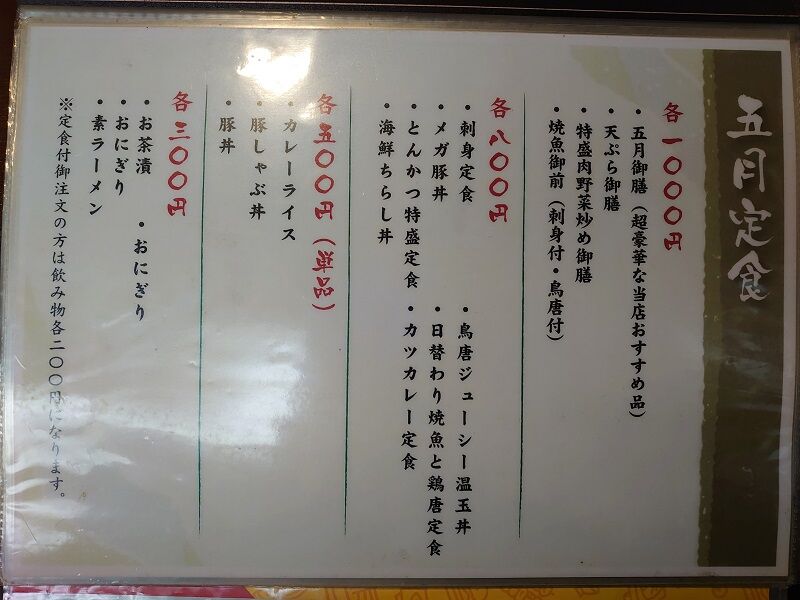 五月定食
各一〇〇〇円
・五月御膳（超豪華な当店おすすめ品）
・天ぷら御膳
・特盛肉野菜炒め御膳
・焼魚御前（刺身付・鳥唐付）
各八〇〇円
・刺身定食　・鳥唐ジューシー温玉丼
・メガ豚丼　・日替わり焼魚と鶏唐定食
・とんかつ特盛定食　・カツカレー定食
・海鮮ちらし丼
各五〇〇円（単品）
・カレーライス
・豚しゃぶ丼
・豚丼
各三〇〇円
・お茶漬　・おにぎり
・おにぎり
・素ラーメン
※定食付御注文の方は飲み物各二〇〇円になります。